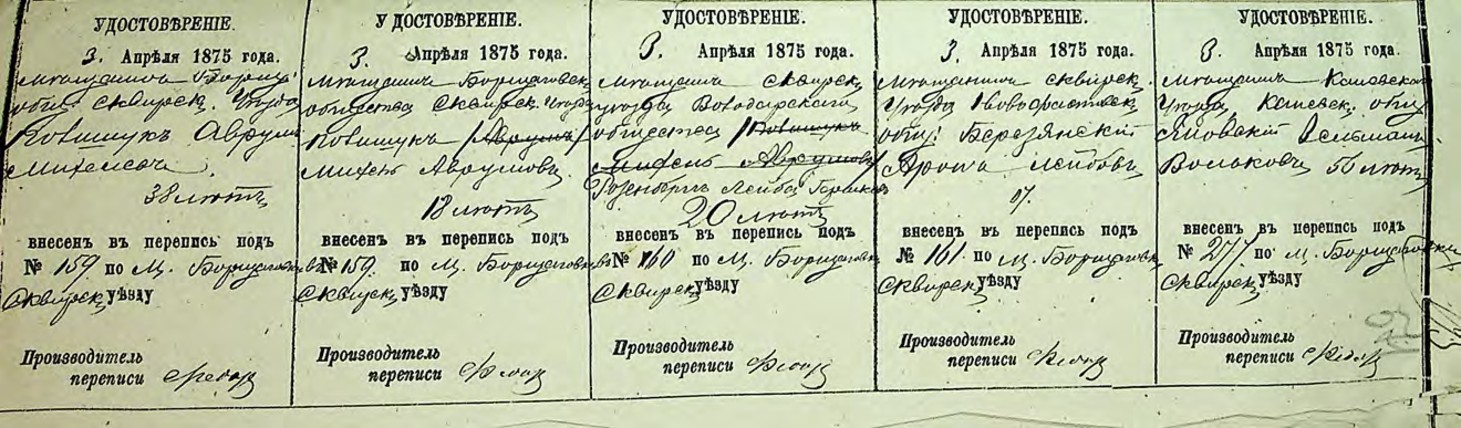 УДОСТОВѢРЕНІЕ.
3. Апрѣля 1875 года.
Мѣщанинъ Борща.
общ: Сквирск. Уѣзда
Ковшукъ Аврумъ
38 лѣтъ
внесенъ въ перепись подъ
№ 159 по м. Борщаговкѣ
Сквирск. уѣзду
Производитель
переписи
УДОСТОВѢРЕНІЕ.
3. Апрѣля 1875 года.
Мѣщанинъ Борщаговск.
общества Сквирск. Уѣзда
Ковшукъ /Аврумъ/
Михель Аврумовъ.
18 лѣтъ
внесенъ въ перепись подъ
№ 159. по м. Борщаговкѣ
Сквирск. уѣзду
Производитель
переписи
УДОСТОВѢРЕНІЕ.
3. Апрѣля 1875 года.
Мѣщанинъ Сквирск.
уѣзда Володарскаго
общества /Ковшукъ
Михель Аврумовъ/
Розенбергъ Лейба Гершковъ
20 лѣтъ
внесенъ въ перепись подъ
№ 160 по м. Борщаговкѣ
Сквирск. уѣзду
Производитель
переписи
УДОСТОВѢРЕНІЕ.
3. Апрѣля 1875 года.
Мѣщанинъ Сквирск.
Уѣзда Новофастовск.
общ: Березянскій
Аронъ Лейбовъ
внесенъ въ перепись подъ
№ 161. по м. Борщаговкѣ
Сквирск. уѣзду
Производитель
переписи
УДОСТОВѢРЕНІЕ.
3. Апрѣля 1875 года.
Мѣщанинъ Каневскаго
Уѣзда, Каневск. общ
Яновскій Зельманъ
Вольковъ 50 лѣтъ
внесенъ въ перепись подъ
№ 277 по м. Борщаговки
Сквирск. уѣзду
Производитель
переписи